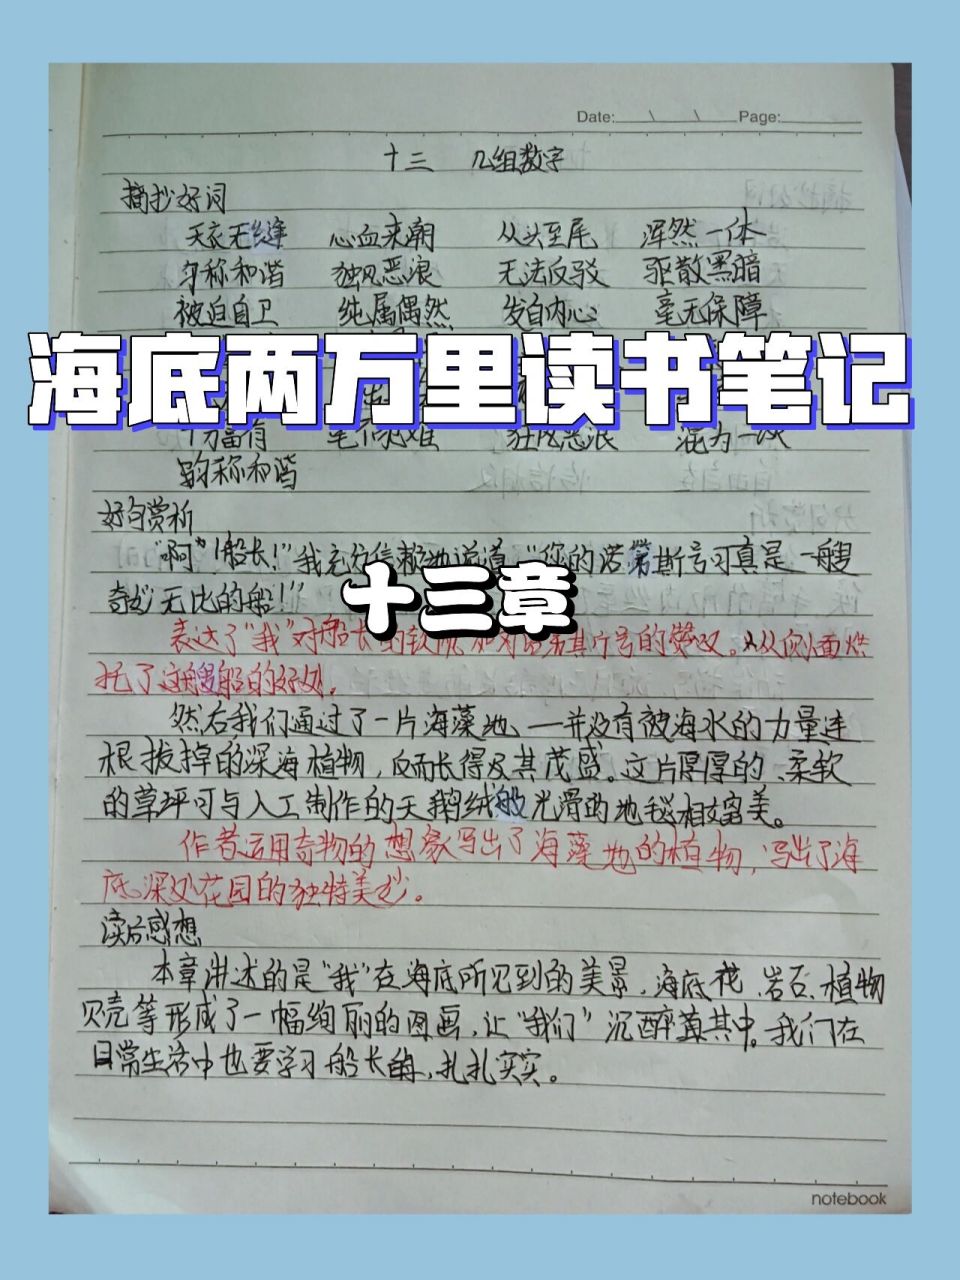 Date: \ \ Page:
十三 几组数字
摘抄好词
天衣无缝 心血来潮 从头至尾 浑然一体
匀称和谐 独风恶浪 无法反驳 驱散黑暗
被迫自卫 纯属偶然 发自内心 毫无保障
海底两万里读书笔记
富有 狂风恶浪 混为一谈
韵称和谐
好句赏析
“啊”!船长!”我充分信赖地说道“你的诺第斯号可真是一艘
奇妙无比的船!”
十三章
表达了“我”对船长的 号的赞叹。从侧面烘
托了这艘船的好处。
然后我们通过了一片海藻地、—并没有被海水的力量连
根拔掉的深海植物,反而长得及其茂盛。这片厚厚的、柔软
的草坪可与人工制作的天鹅绒般光滑的地毯相媲美。
作者运用奇物的想象写出了海藻地的植物,写出了海
底深处花园的独特美妙。
读后感想
本章讲述的是“我”在海底所见到的美景,海底花、岩石、植物
贝壳等形成了一幅绚丽的图画,让“我们”沉醉其中。我们在
日常生活中也要学习船长的,扎扎实实。
notebook